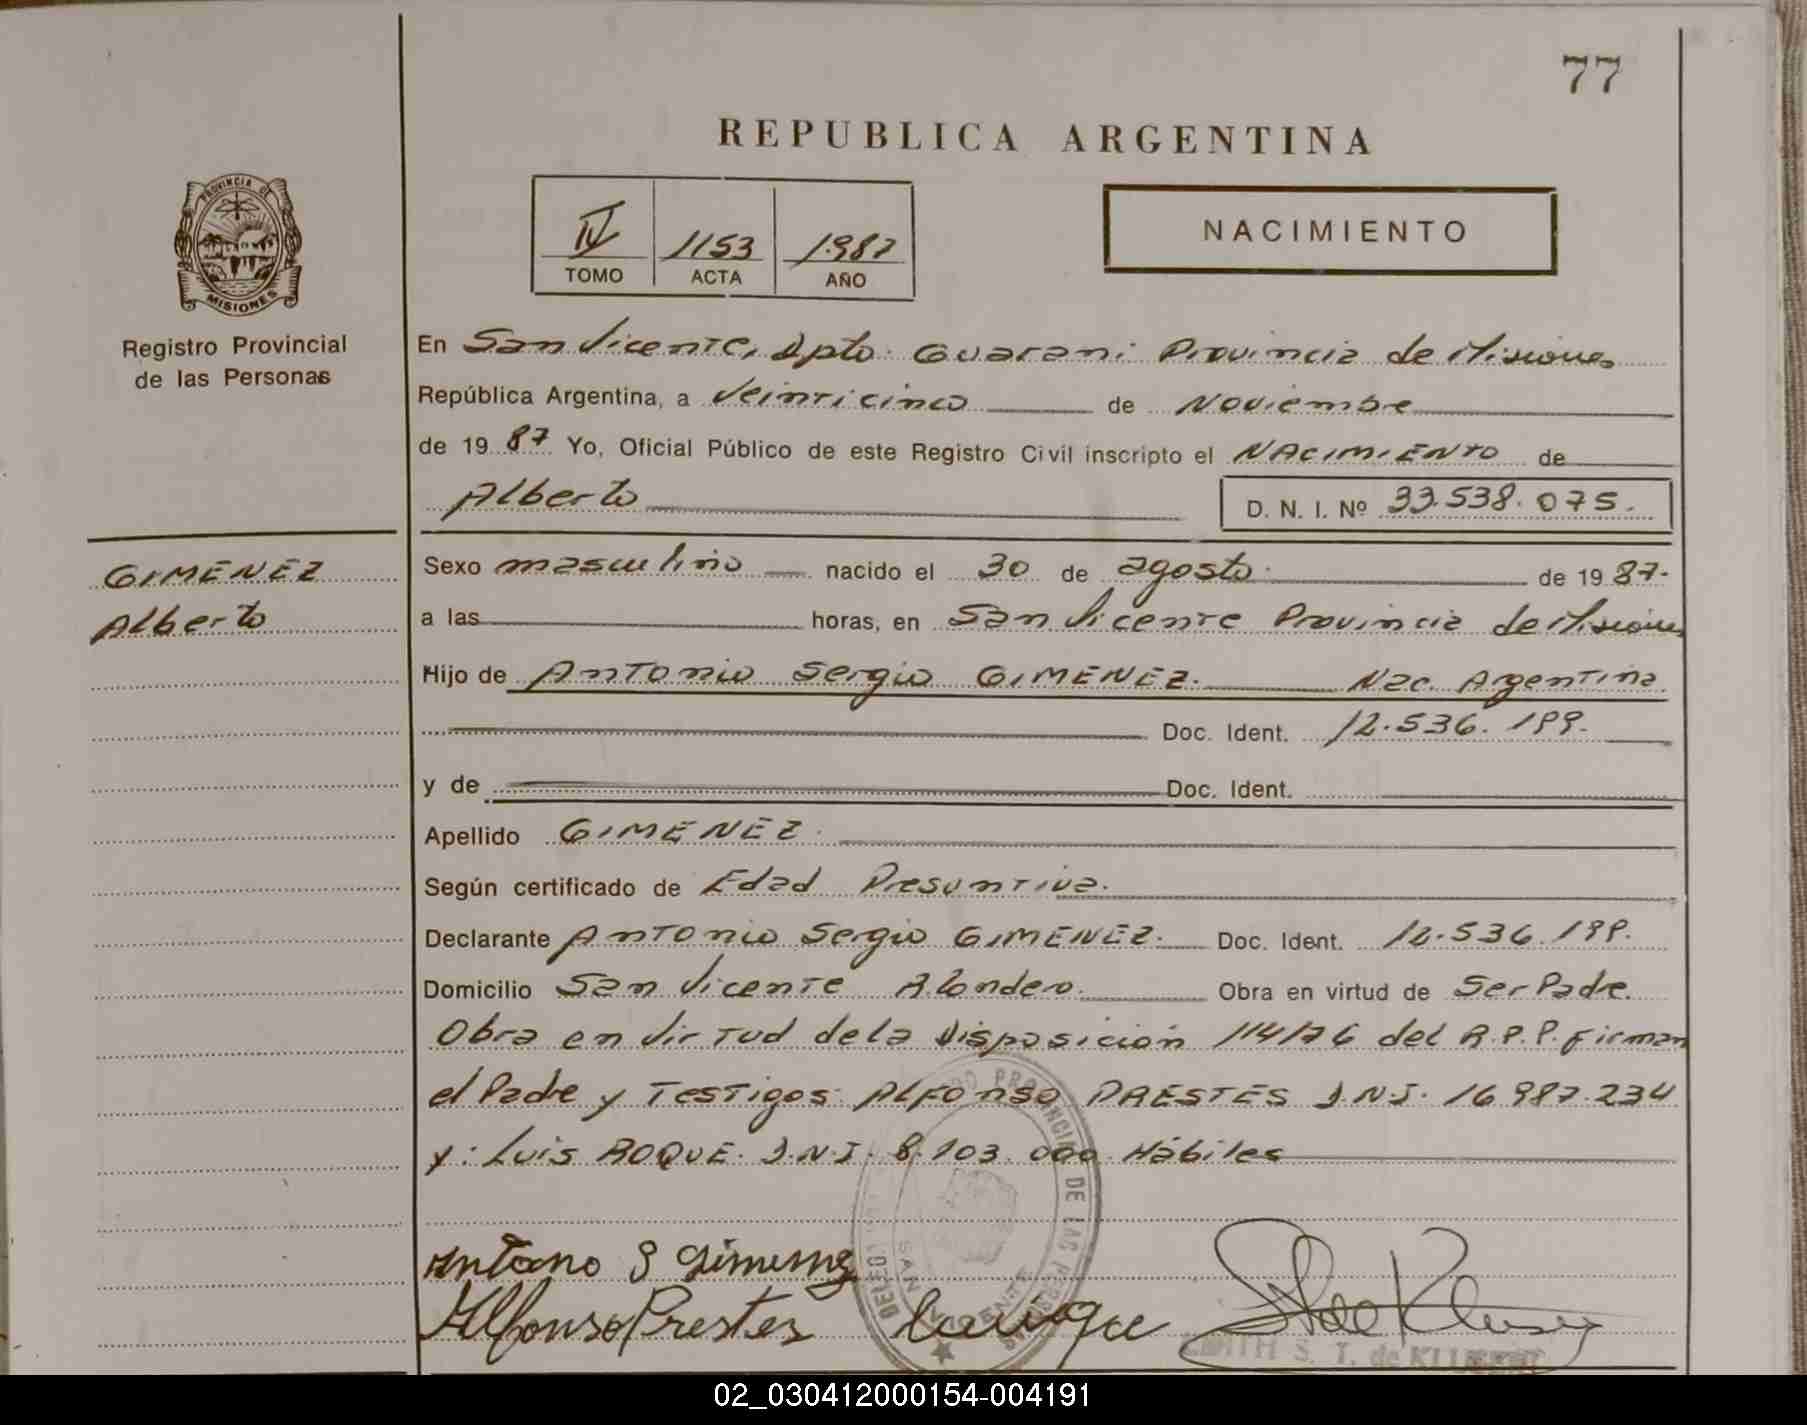 77
REPUBLICA ARGENTINA
IV 1153 1987
TOMO ACTA AÑO
NACIMIENTO
PROVINCIA DE
MISIONES
Registro Provincial
de las Personas
En San Vicente, Dpto. Guarani Provincia de Misiones
República Argentina, a Veinticinco de Noviembre
de 1987 Yo, Oficial Público de este Registro Civil inscripto el NACIMIENTO de
Alberto D. N. I. Nº 33.538.075.
GIMENEZ
Alberto
Sexo masculino nacido el 30 de agosto de 1987.
a las horas, en San Vicente Provincia de Misiones
Hijo de Antonio Sergio GIMENEZ. Nac. Argentina
Doc. Ident. 12.536.199.
y de Doc. Ident.
Apellido GIMENEZ.
Según certificado de Edad Presuntiva.
Declarante Antonio Sergio GIMENEZ. Doc. Ident. 12.536.199.
Domicilio San Vicente Obra en virtud de Ser Padre.
Obra en virtud de la Disposición 114/76 del R.P.P. firman
el Padre y Testigos: ALFONSO PRESTES D.N.I. 16.987.234
y: Luis ROQUE. D.N.I. 8.103.000 Hábiles
Antonio S Gimenez
Alfonso Prestes
PROVINCIAL DE LAS PERSONAS
SAN VICENTE
S. T. de
02_030412000154-004191